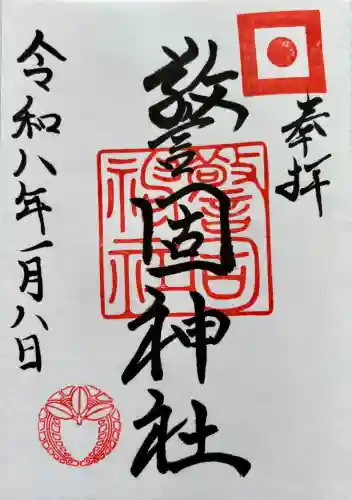 奉拝
警固神社
警固神社
令和八年一月八日